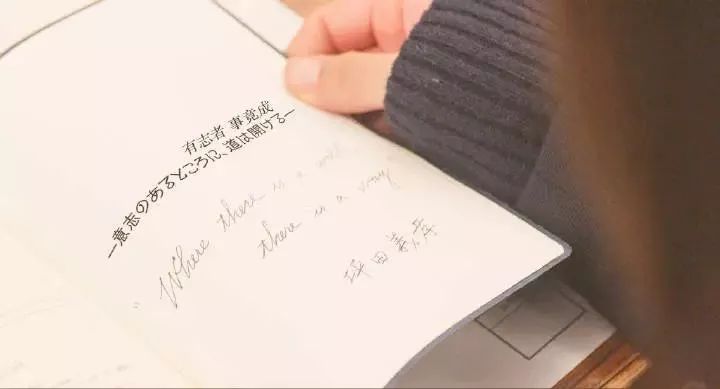 有志者 事竟成
ー意志のあるところに、道は開けるー
"Where there is a will
there is a way"
坪田義孝